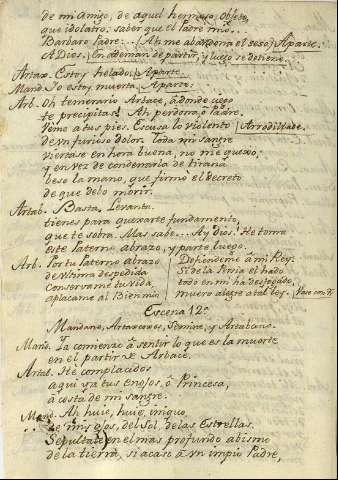 de mi amigo, de aquel hermoso Objeto,
que idolatro: saber que el Padre mio...
Barbaro Padre... (Ah me abandona el seso) Aparte.
A Dios. En ademan de partir, y luego se detiene.
Artax. Estoy helado. Aparte.
Mand. Yo estoy muerta. Aparte.
Arb. Oh temerario Arbace, a donde ciego
te precipitas! Ah perdona, ò Padre.
Veme a tus pies. Escusa lo violento Arrodillase.
de un furioso dolor. Toda mi sangre
viertase en hora buena, no me quexo;
y en vez de condenarla de tirana
beso la mano, que firmò el decreto
de que debo morir.
Artab. Basta, Levanta.
tienes para quexarte fundamento,
que te sobra. Mas sabe... Ay Dios! He toma
este Paterno abrazo, y parte luego.
Arb. Por tu Paterno abrazo Defiendeme à mi Rey.
de ultima despedida Si de la Persia el hado
Conservame tu vida todo en mi ha desfogado,
aplacame al Bien mio muero alegre a tal ley. Vase con
Escena 12ª
Mandane, Artaxerxes, Semira, y Artabano.
Mand. Ya comienzo â sentir lo que es la muerte
en el partir de Arbace.
Artab. He complacido
aqui ya tus enojos, ô Princesa,
â costa de mi sangre.
Mand. Ah huie, huie, iniquo,
de mis ojos, del Sol, de las Estrellas.
Sepultate en el mas profundo abismo
de la tierra, si acaso â un impio Padre,